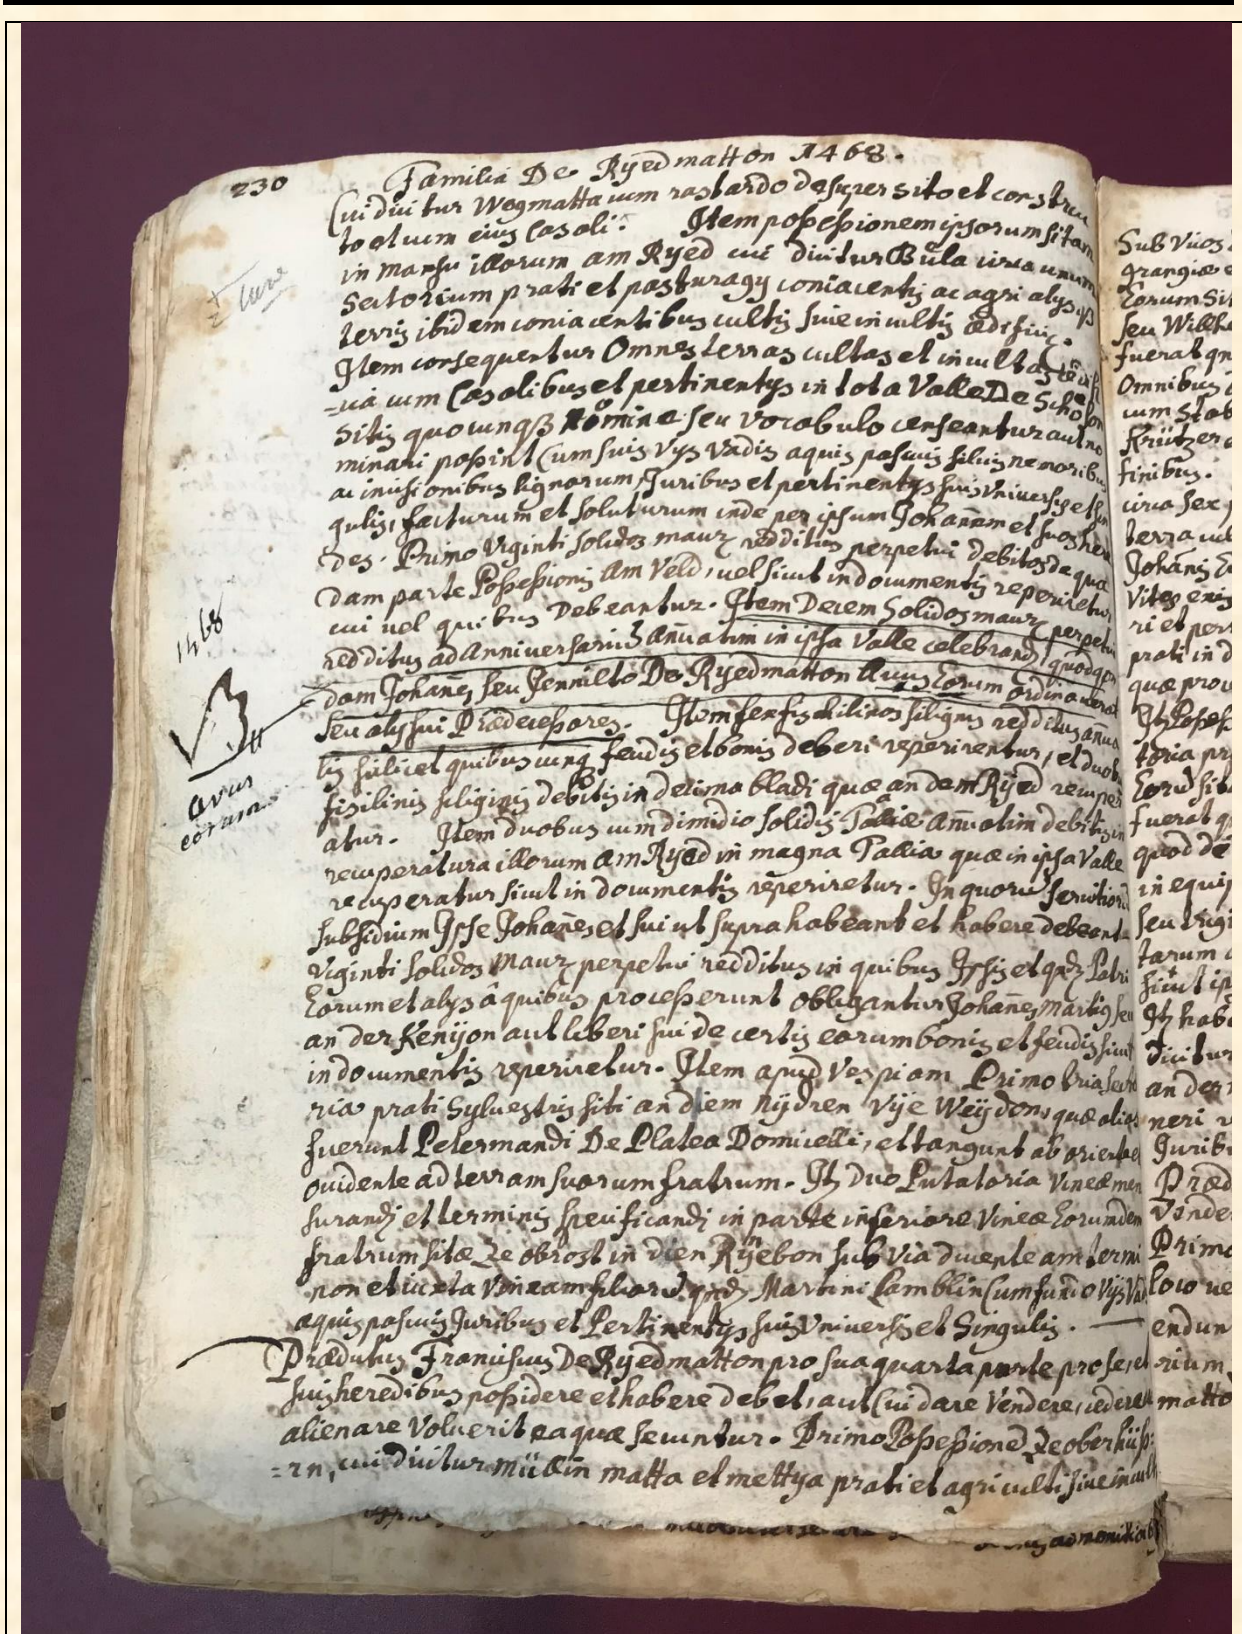 230 Familia De Ryedmatton 1468.
Cui dicitur Wegmatta cum rastardo desuper sito et constru
to et cum eius Casali. Item possessionem ipsorum sitam
in mansu illorum am Ryed cui dicitur Bula circa unum
Sectorium prati et pasturagij coniacentis ac agri alysqz
terris ibidem coniacentibus cultis siue incultis
Item consequentur Omnes terras cultas et incultas
cum Casalibus et pertinentys in tota Valle De
Sitis quocunqz nomine seu vocabulo censeantur aut no
minari possint Cum suis Vys Vadis aquis pascuis siluis nemoribus
ac incisionibus lignorum Juribus et pertinentys suis Vniversis et sin
gulis, facturum et soluturum inde per ipsum Johannem et suos here
des. Primo Viginti solidos maurz redditus perpetui debitos de qua
dam parte Possessionis Am Veld, uel sicut in documentis reperiretur
cui vel quibus Debeantur. Item Decem Solidos maurz perpetui
redditus ad Anniversarium annuatim in ipsa Valle celebrand, quod quon
dam Johannes seu Jennilto De Ryedmatton Avus Eorum ordinauerat
seu alys sui Prædecessores. Item fisilinos silignis redditus annua
tis scilicet quibuscunqz feudis et bonis deberi reperirentur, et duob
fisilinis siliginis debitis in decima bladi quæ an dem Ryed recuper
atur. Item duobus cum dimidio solidis Talliæ Annuatim debitis in
recuperatura illorum Am Ryed in magna Tallia quæ in ipsa Valle
recuperatur sicut in documentis reperiretur. In quorum seruitiorum
subsidium Ipse Johannes et sui ut supra habeant et habere debeant
Viginti solidos Maurz perpetui redditus in quibus Ipsis et qdz Patri
Eorum et alys à quibus processerunt obligantur Johannes Martis seu
an der Kenijon aut liberi sui de certis earum bonis et feudis sicut
in documentis reperiretur. Item apud Vespiam Primo tria secto
ria prati Sylvestris siti an diem nijdren Vije Weijdon, quæ alias
fuerunt Petermandi De Platea Domicelli, et tangunt ab oriente et
occidente ad terram suorum fratrum. Itz Duo Putatoria Vineæ men
surandj et terminis specificandj in parte inferiore Vineæ Eorumdem
fratrum sitæ Ze obrost in dien Ryebon sub via ducente am termi
non et iuxta Vineam filiorum qndz Martini Lamblin Cum fundo Vijs Va
aquis pascuis Juribus et Pertinentys suis Vniversis et Singulis.
Prædictus Franciscus De Ryedmatton pro sua quarta parte pro se, et
suis heredibus possidere et habere debet, aut Cui dare Vendere, cedere
alienare Voluerit ea quæ secuntur. Primo Possessioned Ze oberhüs
=rn, cui dicitur müllin matta et mettya prati et agri culti siue incult
1468
avus
eorum
Sub Vios
grangiæ
Eorum Si
seu Willh
fuerat qn
Omnibus
cum Stab
Krützer
finibus.
circa sex
terra
Johanis
Vites
ri et per
prati in d
quæ prov
Itz Posses
toria pr
Eorum sit
fuerat q
quod de
in equi
seu Vigi
tarum
sicut ip
Itz hab
Dicitur
an der
neri
Juribu
Præd
Vende
Primo
loco ve
endun
rium
matto